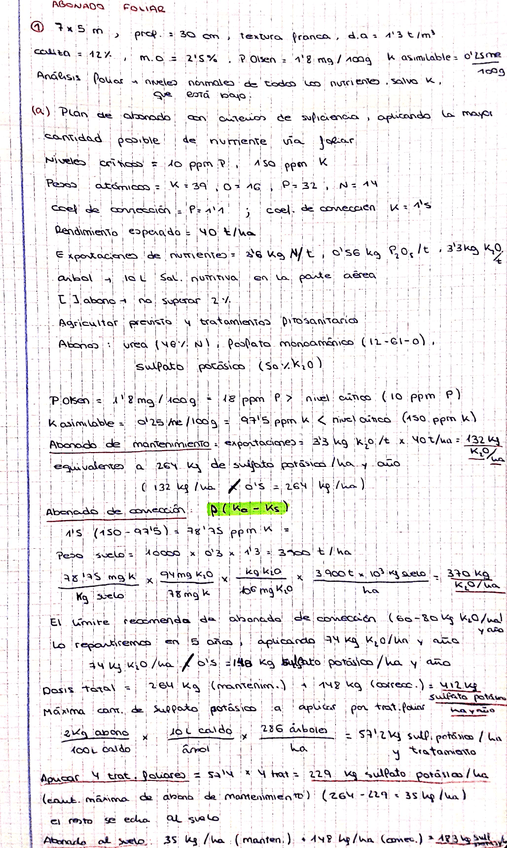 ABONADO FOLIAR
① 7x5 m , prof. = 30 cm , textura franca, d.a = 1'3 t/m³
caliza = 12% , m.o = 2'5% . P Olsen = 1'8 mg/100g K asimilable = 0'25me/100g
Análisis foliar → niveles normales de todos los nutriente, salvo K,
que está bajo.
(a) Plan de abonado con criterios de suficiencia, aplicando la mayor
cantidad posible de nutriente via foliar
Niveles críticos = 10 ppm P , 150 ppm K
Pesos atómicos = K = 39 , O = 16 , P = 32 , N = 14
coef de corrección = P = 1'1 ; coef. de corrección K = 1'5
Rendimiento esperado = 40 t/ha
Exportaciones de nutrientes = 3'6 kg N/t , 0'56 kg P₂O₅/t , 3'3 kg K₂O/t
árbol → 10 L Sol. nutritiva en la parte aérea
[ ] abono → no superar 2%
Agricultor previsto 4 tratamientos fitosanitarios
Abonos : urea (46% N), fosfato monoamónico (12-61-0),
sulfato potásico (50% K₂O)
P Olsen = 1'8 mg/100g = 18 ppm P > nivel crítico (10 ppm P)
K asimilable = 0'25 me/100g = 97'5 ppm K < nivel crítico (150 ppm K)
Abonado de mantenimiento : exportaciones = 3'3 kg K₂O/t x 40 t/ha = 132 kg K₂O/ha
equivalentes a 264 kg de sulfato potásico/ha y año
(132 kg/ha / 0'5 = 264 kg/ha)
Abonado de corrección : β(K₀ - Ks)
1'5 (150 - 97'5) = 78'75 ppm K =
Peso suelo = 10000 x 0'3 x 1'3 = 3900 t/ha
78'75 mg K / kg suelo x 94 mg K₂O / 78 mg K x kg K₂O / 10⁶ mg K₂O x 3900 t x 10³ kg suelo / ha = 370 kg K₂O/ha
El límite recomienda de abonado de corrección (60-80 kg K₂O/ha y año)
Lo repartiremos en 5 años, aplicando 74 kg K₂O/ha y año
74 kg K₂O/ha / 0'5 = 148 kg sulfato potásico/ha y año
Dosis total = 264 kg (mantenim.) + 148 kg (correcc.) = 412 kg sulfato potásico ha y año
Máxima cant. de sulfato potásico a aplicar por trat. foliar
2kg abono / 100L caldo x 10L caldo / árbol x 286 árboles / ha = 57'2 kg sulf. potásico/ha y tratamiento
Aplicar 4 trat. foliares = x 4 trat = 229 kg sulfato potásico/ha
(cant. máxima de abono de mantenimiento) (264 - 229 = 35 kg/ha)
el resto se echa al suelo
Abonado al suelo : 35 kg/ha (manten.) + 148 kg/ha (correc.) = 183 kg